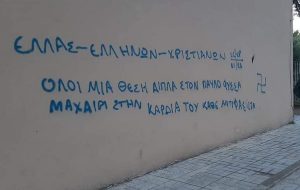 ΕΛΛΑΣ-ΕΛΛΗΝΩΝ-ΧΡΙΣΤΙΑΝΩΝ
ΟΛΟΙ ΜΙΑ ΘΕΣΗ ΔΙΠΛΑ ΣΤΟΝ ΠΑΥΛΟ ΦΥΣΣΑ
ΜΑΧΑΙΡΙ ΣΤΗΝ ΚΑΡΔΙΑ ΤΟΥ ΚΑΘΕ